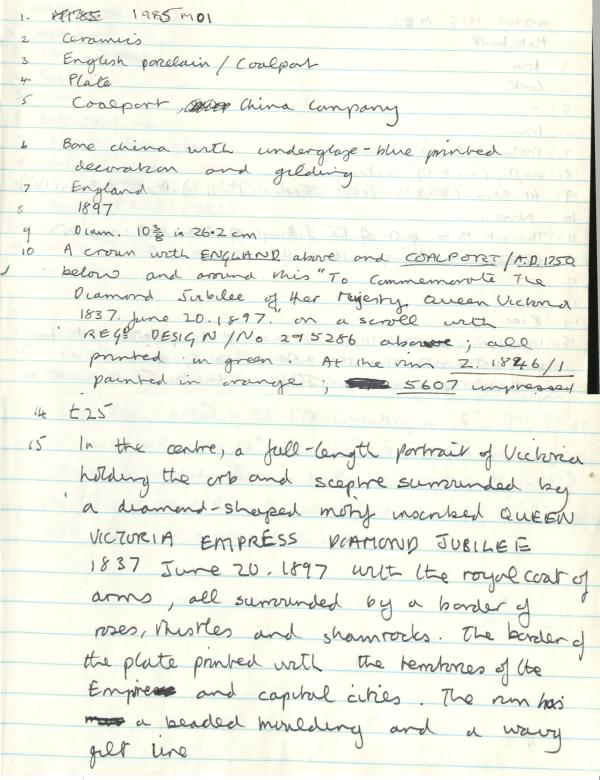 1. 1985 M01
2 Ceramics
3 English porcelain / Coalport
4 Plate
5 Coalport China Company
6 Bone china with underglaze-blue printed
decoration and gilding
7 England
8 1897
9 Diam. 10 3/8 in 26.2 cm
10 A crown with ENGLAND above and COALPORT/A.D. 1750
below and around this "To Commemorate The
Diamond Jubilee of Her Majesty Queen Victoria
1837. June 20. 1897." on a scroll with
REGD DESIGN/No 295286 above; all
printed in green. At the rim 2.1846/1
painted in orange; 5607 impressed
14 £25
15 In the centre, a full-length portrait of Victoria
holding the orb and sceptre surrounded by
a diamond-shaped motif inscribed QUEEN
VICTORIA EMPRESS DIAMOND JUBILEE
1837 June 20. 1897 with the royal coat of
arms, all surrounded by a border of
roses, thistles and shamrocks. The border of
the plate printed with the territories of the
Empire and capital cities. The rim has
a beaded moulding and a wavy
gilt line